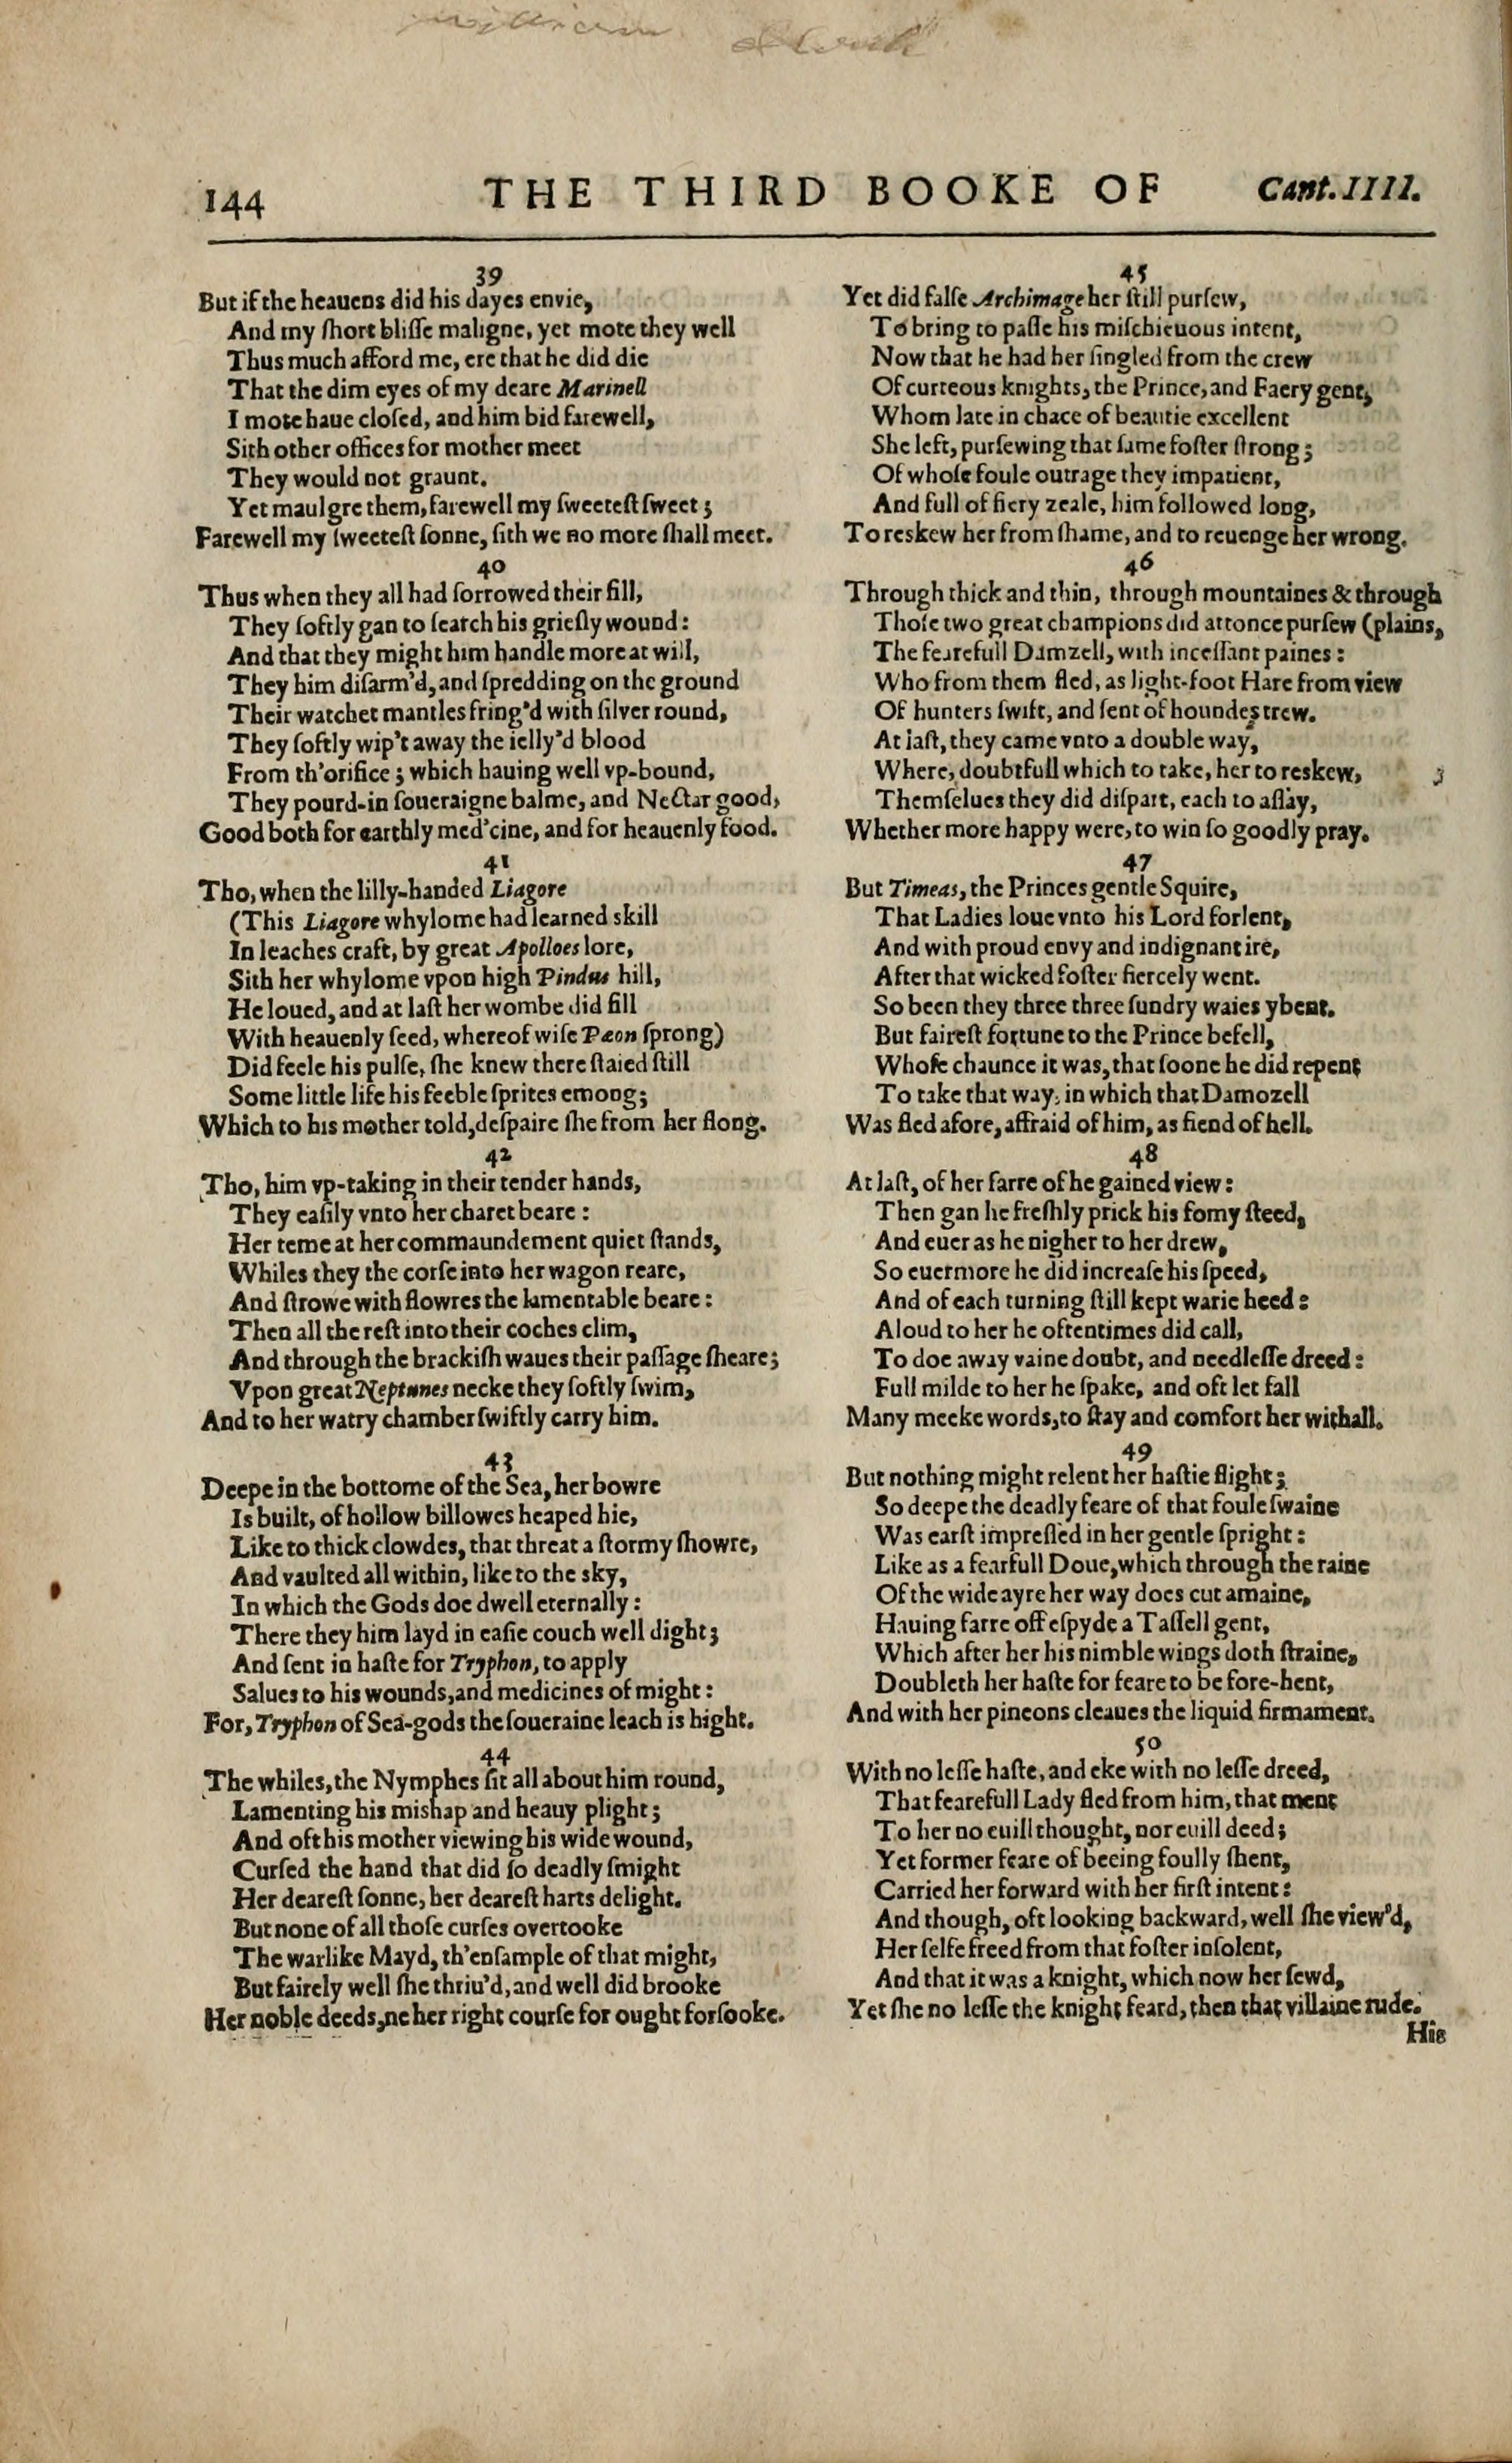 william
144 THE THIRD BOOKE OF Cant.IIII.
39
But if the heauens did his dayes envie,
And my ſhort bliſſe maligne, yet mote they well
Thus much afford me, ere that he did die
That the dim eyes of my deare Marinell
I mote haue cloſed, and him bid farewell,
Sith other offices for mother meet
They would not graunt.
Yet maulgre them, farewell my ſweeteſt ſweet;
Farewell my ſweeteſt ſonne, ſith we no more ſhall meet.
40
Thus when they all had ſorrowed their fill,
They ſoftly gan to ſearch his grieſly wound:
And that they might him handle more at will,
They him diſarm'd, and ſpredding on the ground
Their watchet mantles fring'd with ſilver round,
They ſoftly wip't away the ielly'd blood
From th'orifice; which hauing well vp-bound,
They pourd-in ſoueraigne balme, and Nectar good,
Good both for earthly med'cine, and for heauenly food.
41
Tho, when the lilly-handed Liagore
(This Liagore whylome had learned skill
In leaches craft, by great Apolloes lore,
Sith her whylome vpon high Pindus hill,
He loued, and at laſt her wombe did fill
With heauenly ſeed, whereof wiſe Pæon ſprong)
Did feele his pulſe, ſhe knew there ſtaied ſtill
Some little life his feeble ſprites emong;
Which to his mother told, deſpaire ſhe from her flong.
42
Tho, him vp-taking in their tender hands,
They eaſily vnto her charet beare:
Her teme at her commaundement quiet ſtands,
Whiles they the corſe into her wagon reare,
And ſtrowe with flowres the lamentable beare:
Then all the reſt into their coches clim,
And through the brackiſh waues their paſſage ſheare;
Vpon great Neptunes necke they ſoftly ſwim,
And to her watry chamber ſwiftly carry him.
43
Deepe in the bottome of the Sea, her bowre
Is built, of hollow billowes heaped hie,
Like to thick clowdes, that threat a ſtormy ſhowre,
And vaulted all within, like to the sky,
In which the Gods doe dwell eternally:
There they him layd in eaſie couch well dight;
And ſent in haſte for Tryphon, to apply
Salues to his wounds, and medicines of might:
For, Tryphon of Sea-gods the ſoueraine leach is hight.
44
The whiles, the Nymphes ſit all about him round,
Lamenting his mishap and heauy plight;
And oft his mother viewing his wide wound,
Curſed the hand that did ſo deadly ſmight
Her deareſt ſonne, her deareſt harts delight.
But none of all thoſe curſes overtooke
The warlike Mayd, th'enſample of that might,
But fairely well ſhe thriu'd, and well did brooke
Her noble deeds, ne her right courſe for ought forſooke.
45
Yet did falſe Archimage her ſtill purſew,
To bring to paſſe his miſchieuous intent,
Now that he had her ſingled from the crew
Of curteous knights, the Prince, and Faery gent,
Whom late in chace of beautie excellent
She left, purſewing that ſame foſter ſtrong;
Of whoſe foule outrage they impatient,
And full of fiery zeale, him followed long,
To reskew her from ſhame, and to reuenge her wrong.
46
Through thick and thin, through mountaines & through
Thoſe two great champions did attonce purſew (plains,
The fearefull Damzell, with inceſſant paines:
Who from them fled, as light-foot Hare from view
Of hunters ſwift, and ſent of houndes trew.
At laſt, they came vnto a double way,
Where, doubtfull which to take, her to reskew,
Themſelues they did diſpart, each to aſſay,
Whether more happy were, to win ſo goodly pray.
47
But Timeas, the Princes gentle Squire,
That Ladies loue vnto his Lord forlent,
And with proud envy and indignant ire,
After that wicked foſter fiercely went.
So been they three three ſundry waies ybent.
But faireſt fortune to the Prince befell,
Whoſe chaunce it was, that ſoone he did repent
To take that way, in which that Damozell
Was fled afore, affraid of him, as fiend of hell.
48
At laſt, of her farre of he gained view:
Then gan he freſhly prick his fomy ſteed,
And euer as he nigher to her drew,
So euermore he did increaſe his ſpeed,
And of each turning ſtill kept warie heed:
Aloud to her he oftentimes did call,
To doe away vaine doubt, and needleſſe dreed:
Full milde to her he ſpake, and oft let fall
Many meeke words, to ſtay and comfort her withall.
49
But nothing might relent her haſtie flight;
So deepe the deadly feare of that foule ſwaine
Was earſt impreſſed in her gentle ſpright:
Like as a fearfull Doue, which through the raine
Of the wide ayre her way does cut amaine,
Hauing farre off eſpyde a Taſſell gent,
Which after her his nimble wings doth ſtraine,
Doubleth her haſte for feare to be fore-hent,
And with her pineons cleaues the liquid firmament.
50
With no leſſe haſte, and eke with no leſſe dreed,
That fearefull Lady fled from him, that ment
To her no euill thought, nor euill deed;
Yet former feare of beeing foully ſhent,
Carried her forward with her firſt intent:
And though, oft looking backward, well ſhe view'd,
Her ſelfe freed from that foſter inſolent,
And that it was a knight, which now her ſewd,
Yet ſhe no leſſe the knight feard, then that villaine rude.
His